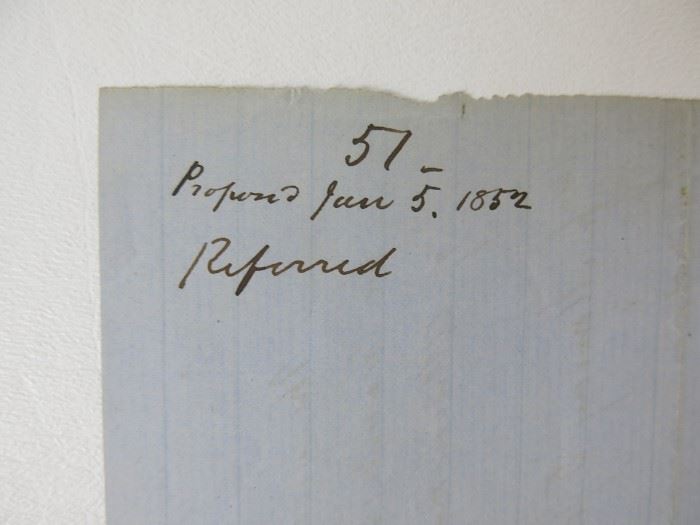 51_
Proposed Jan 5. 1852
Referred